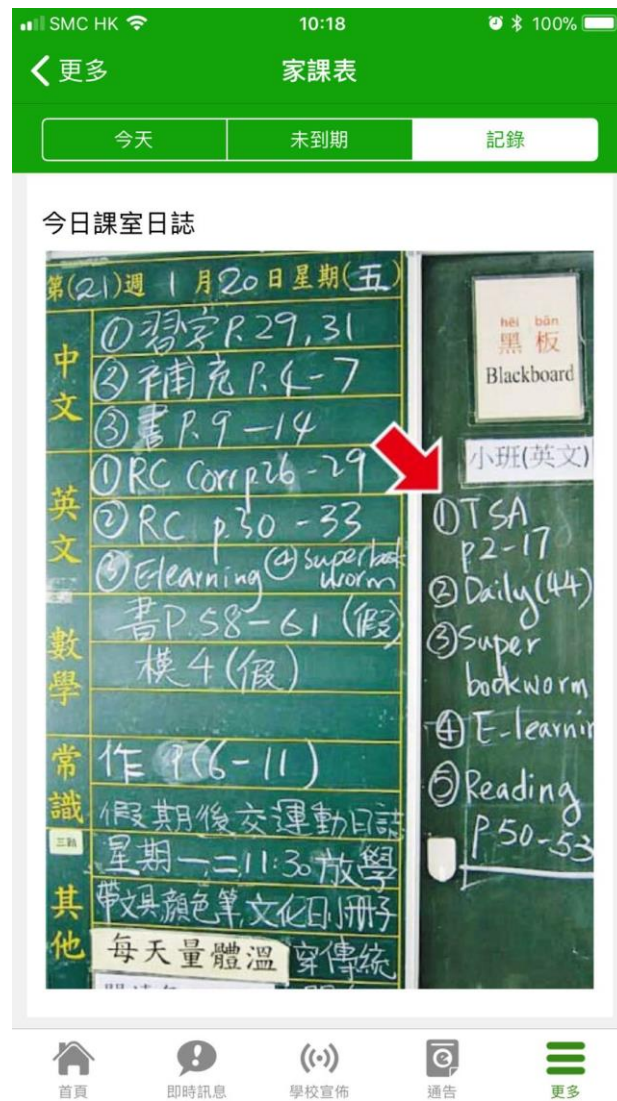 SMC HK 10:18 100%
更多 家課表
今天 未到期 記錄
今日課室日誌
第(21)週 1月20日星期(五)
中文
①習字P.29,31
②補充P.4-7
③書P.9-14
英文
①RC Corr p26-29
②RC p.30-33
③Elearning ④superbookworm
數學
書P.58-61(假)
模4(假)
常識
作P(6-11)
假期後交運動日誌
其他
星期一,二11:30放學
帶文具顏色筆,文化日小冊子
每天量體溫 穿傳統
hēi bǎn
黑板
Blackboard
小班(英文)
①TSA
p2-17
②Daily(44)
③Super
bookworm
④E-learnin
⑤Reading
P.50-53
首頁 即時訊息 學校宣佈 通告 更多